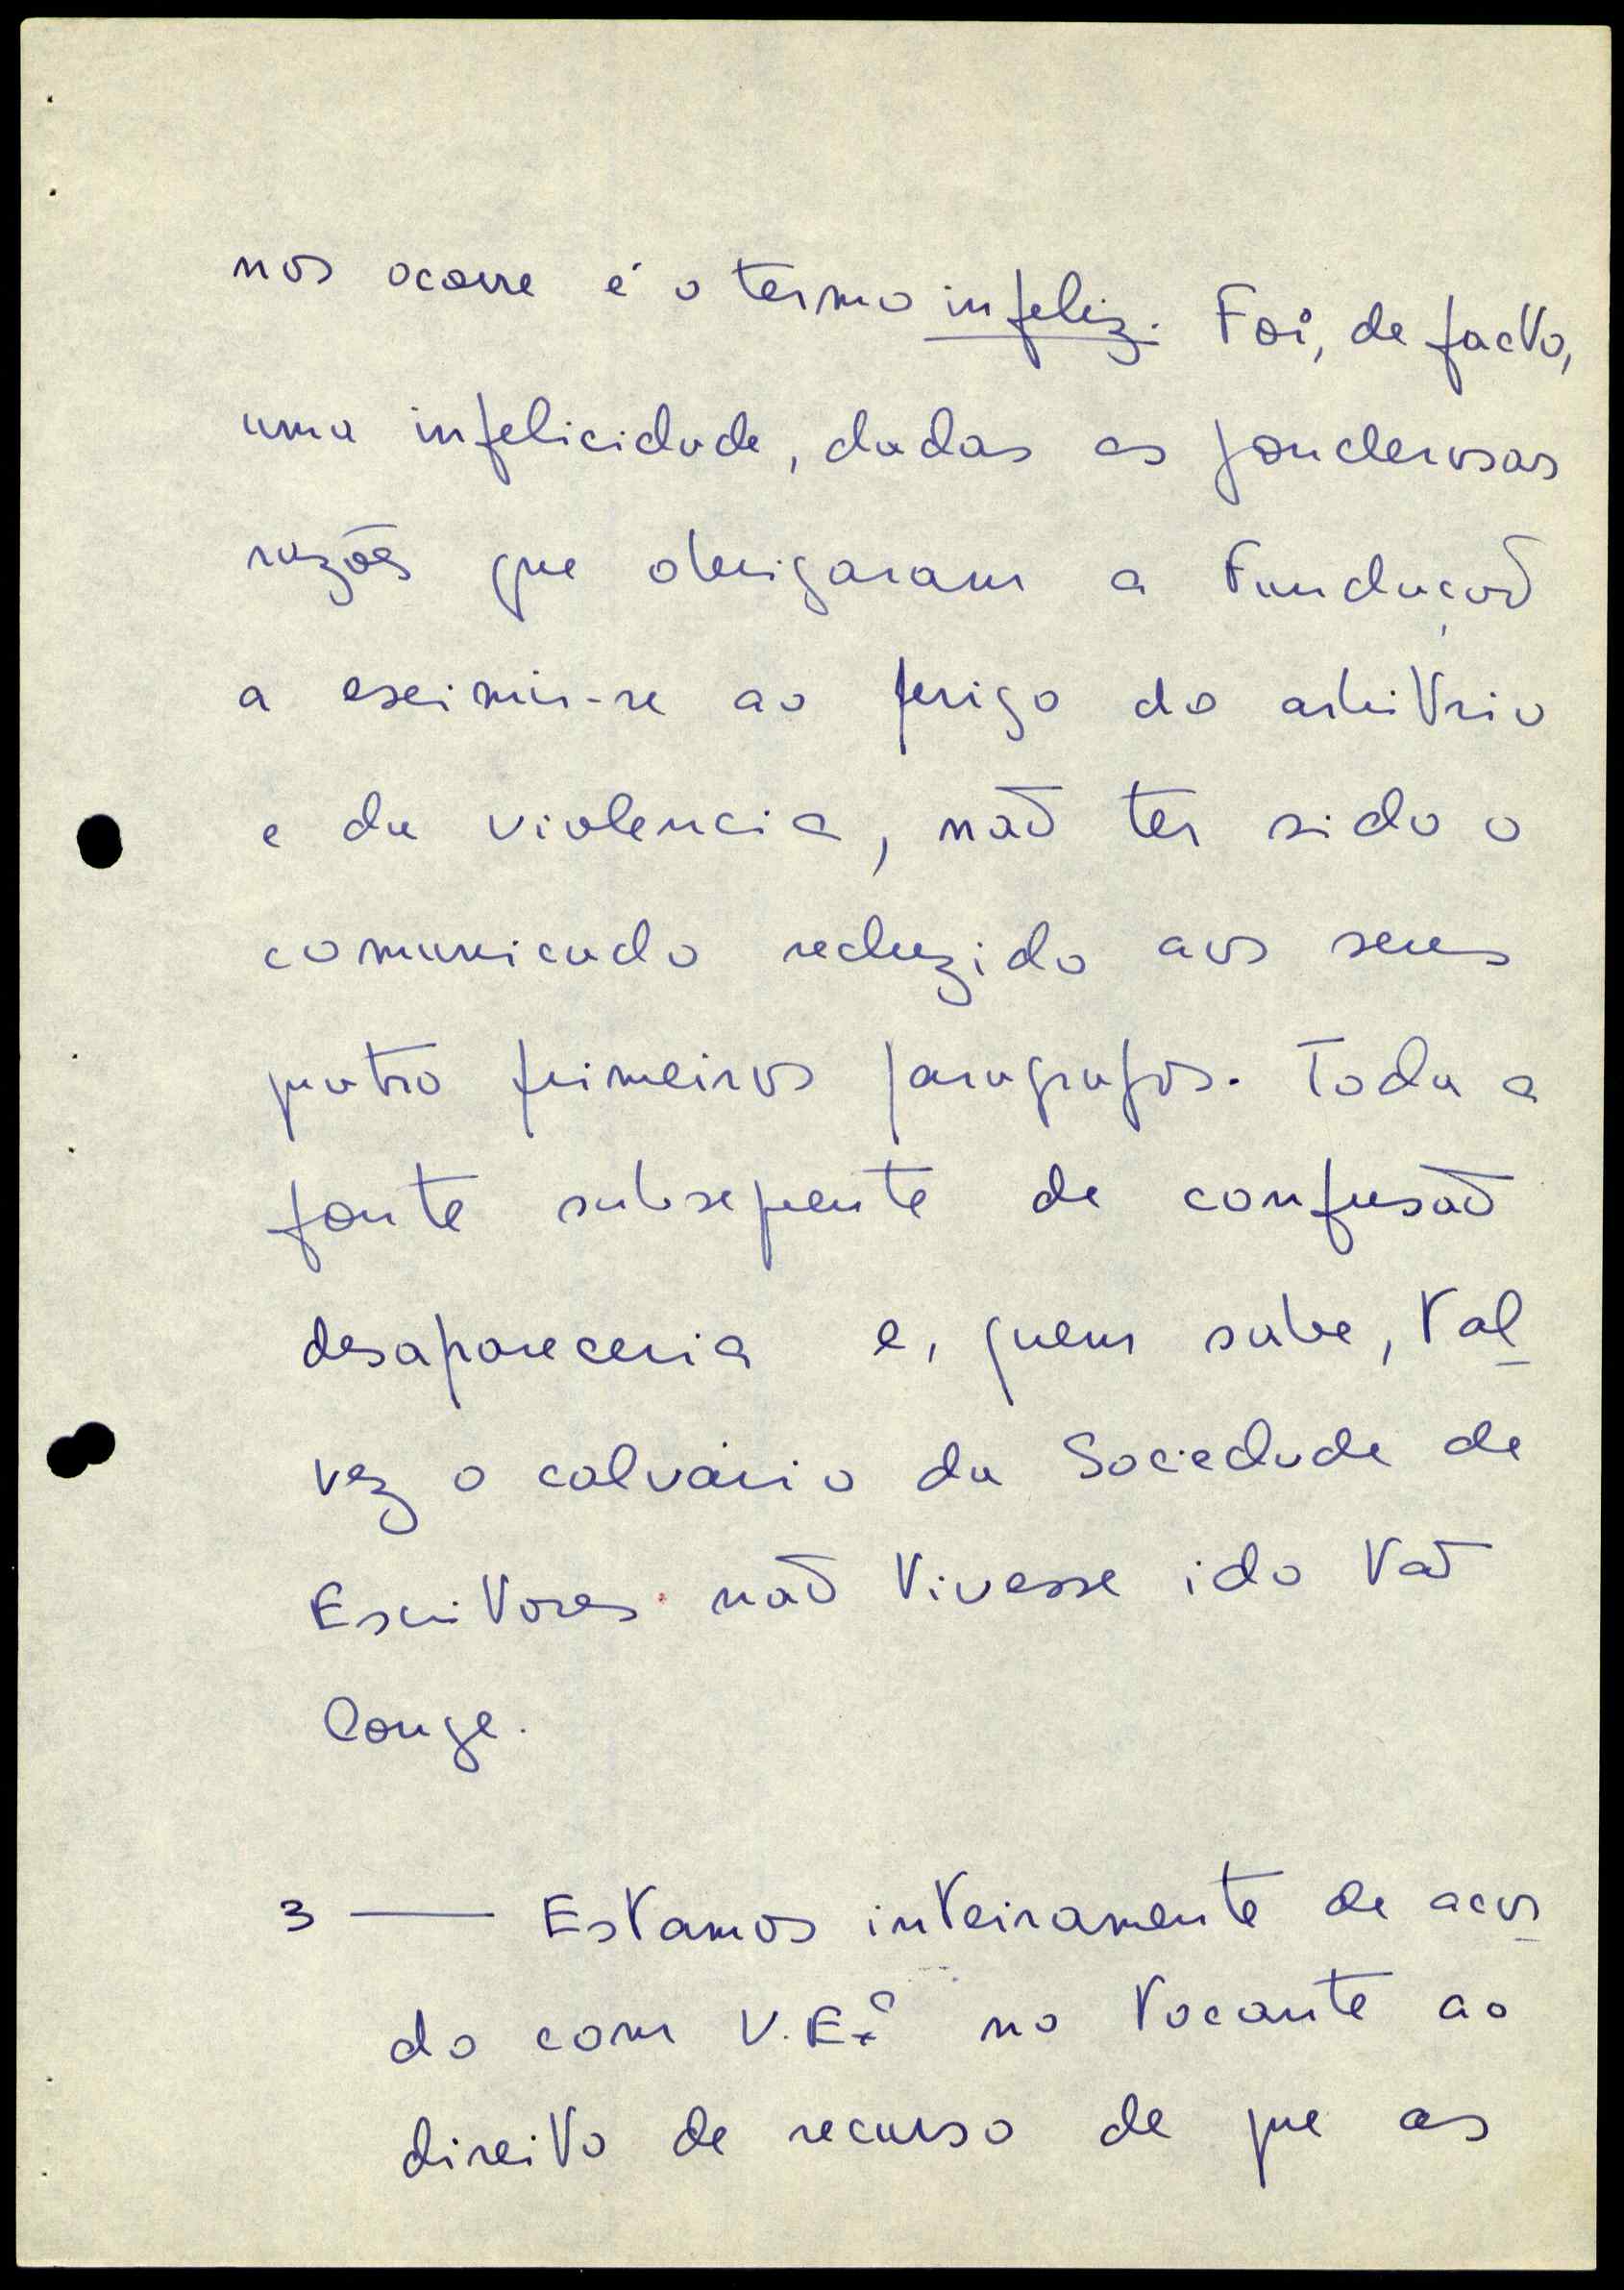 nos ocorre é o termo infeliz. Foi, de facto,
uma infelicidade, dadas as ponderosas
razões que obrigaram a Fundação
a eximir-se ao perigo do arbitrio
e da violencia, não ter sido o
comunicado reduzido aos seus
quatro primeiros paragrafos. Toda a
fonte subsequente de confusão
desapareceria e, quem sabe, tal
vez o calvário da Sociedade de
Escritores não tivesse ido tão
longe.
3 — Estamos inteiramente de acor
do com V. Exª no tocante ao
direito de recurso de que as